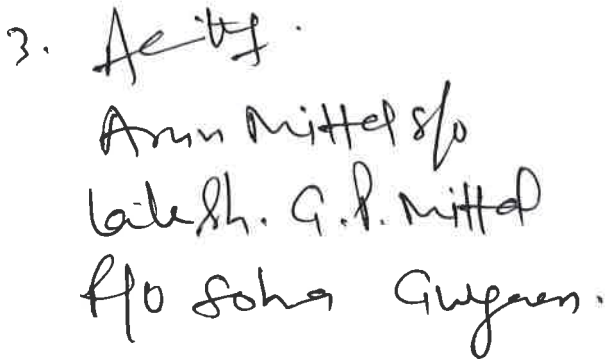 3.
Arun Mittal s/o
Late Sh. G.P. Mittal
R/o Sohna Gurgaon.